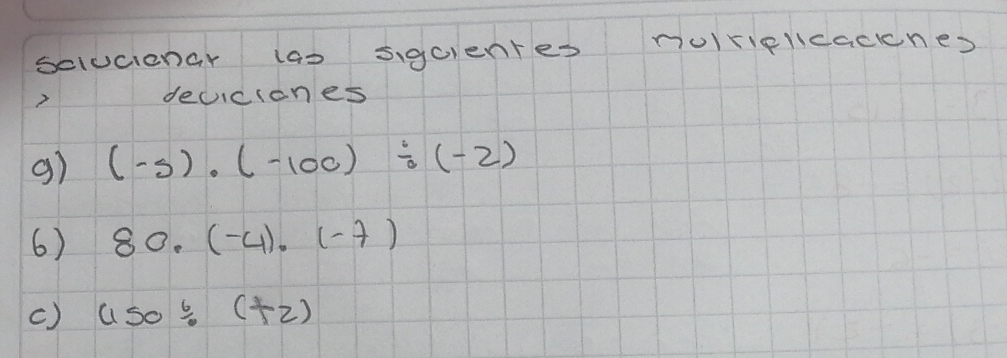 solucionar las sigcientes moltiplicaciones
y deviciones
a) (-5) . (-100) ÷ (-2)
b) 80. (-4). (-7)
c) 450 ÷ (+2)